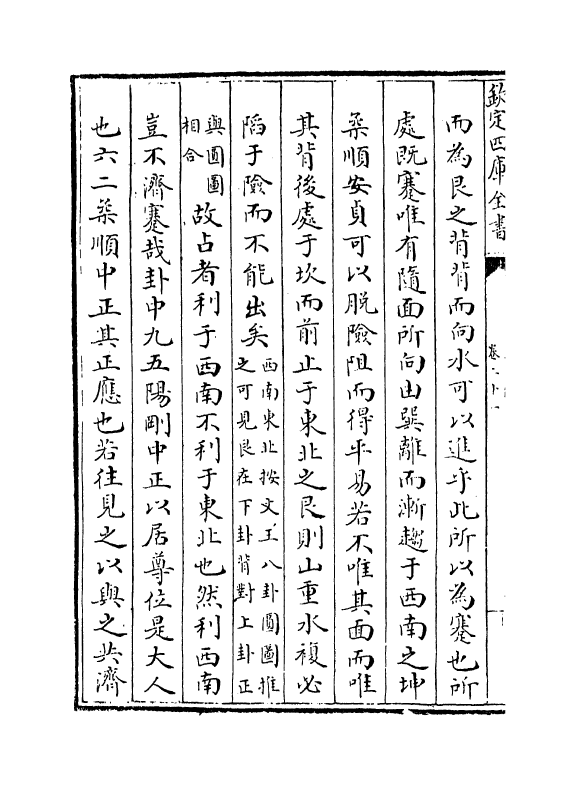 欽定四庫全書
而為艮之背背而向水可以進乎此所以為蹇也所
處既蹇唯有隨面所向由巽離而漸趨于西南之坤
柔順安貞可以脱險阻而得平易若不唯其面而唯
其背後處于坎而前止于東北之艮則山重水複必
陷于險而不能出矣西南東北按文王八卦圓圖推之可見艮在下卦背對上卦正
與圓圖相合故占者利于西南不利于東北也然利西南
豈不濟蹇哉卦中九五陽剛中正以居尊位是大人
也六二柔順中正其正應也若往見之以與之共濟